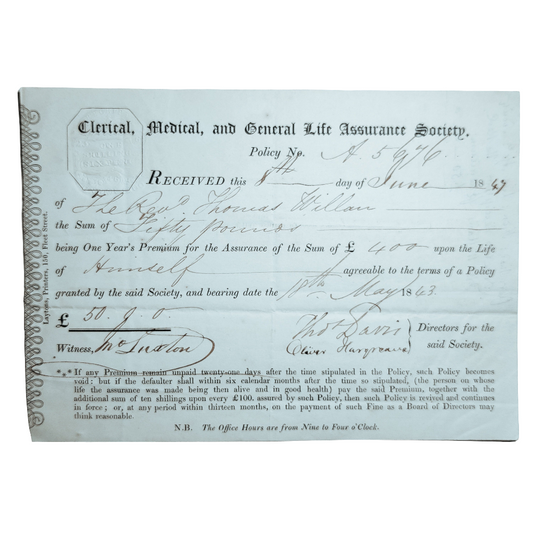 Clerical, Medical, and General Life Assurance Society.
Policy No. A. 5976.
RECEIVED this 8th day of June 1847
of The Revd. Thomas Willan
the Sum of Fifty pounds
being One Year's Premium for the Assurance of the Sum of £ 400 upon the Life
of Himself agreeable to the terms of a Policy
granted by the said Society, and bearing date the May 1843.
£ 50. 9. 0.
Thos. Davis
Oliver Hargreave
Directors for the
said Society.
Witness,
*,* If any Premium remain unpaid twenty-one days after the time stipulated in the Policy, such Policy becomes
void: but if the defaulter shall within six calendar months after the time so stipulated, (the person on whose
life the assurance was made being then alive and in good health) pay the said Premium, together with the
additional sum of ten shillings upon every £100. assured by such Policy, then such Policy is revived and continues
in force; or, at any period within thirteen months, on the payment of such Fine as a Board of Directors may
think reasonable.
N.B. The Office Hours are from Nine to Four o'Clock.
Laytons, Printers, 150, Fleet Street.